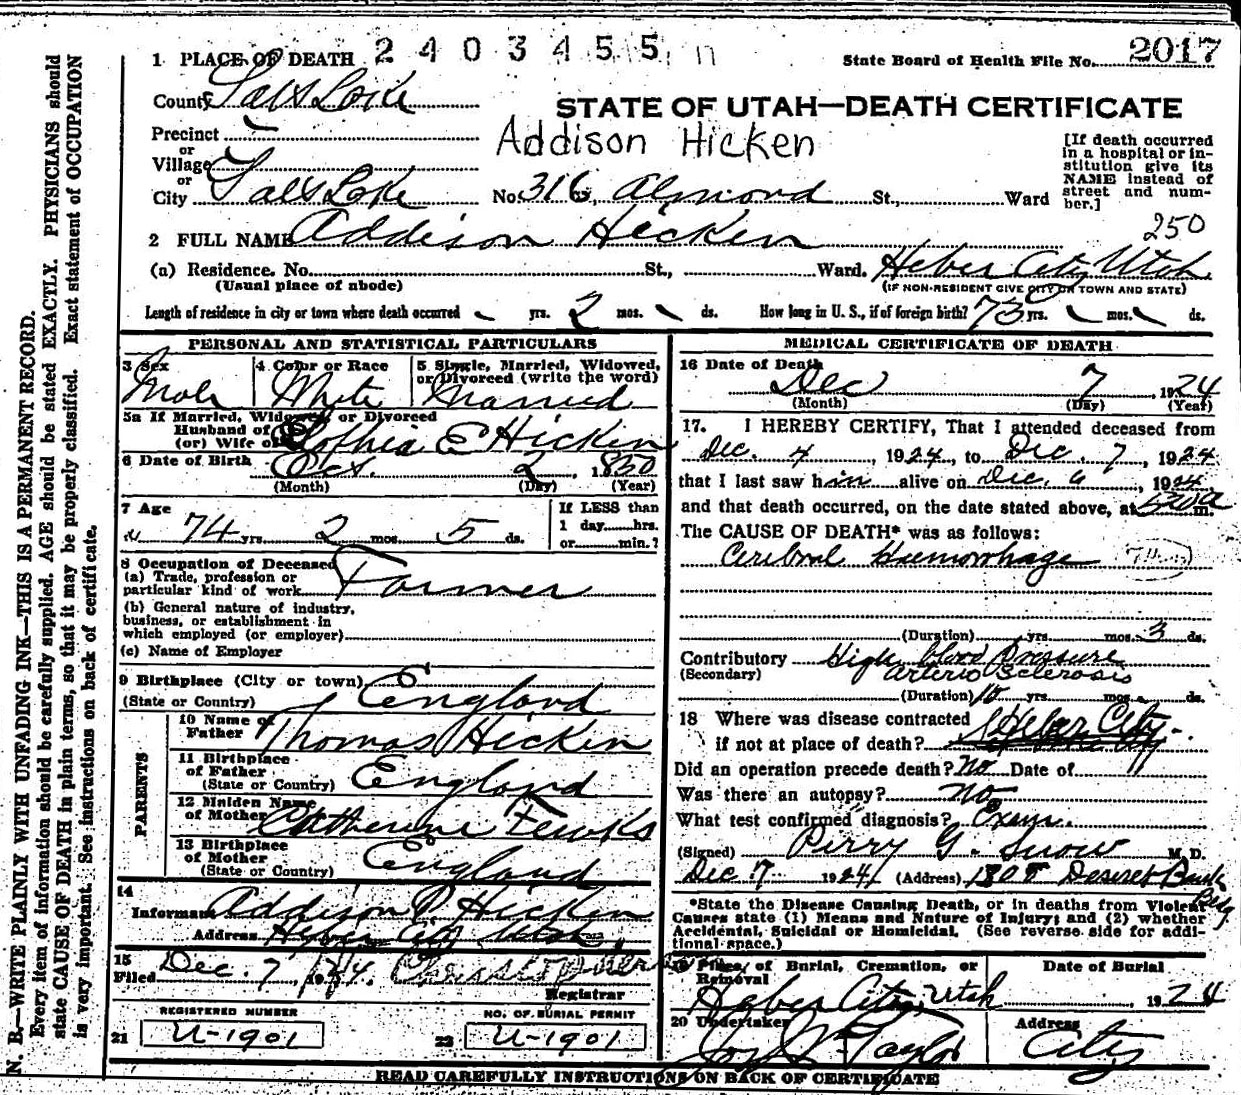 1 PLACE OF DEATH 2403455
State Board of Health File No. 2017
County Salt Lake
STATE OF UTAH—DEATH CERTIFICATE
Precinct
or
Village
or
City Salt Lake
Addison Hicken
No. 316 Almond St., Ward
[If death occurred
in a hospital or in-
stitution give its
NAME instead of
street and num-
ber.]
2 FULL NAME Addison Hicken
250
(a) Residence. No. St., Ward. Heber City Utah
(Usual place of abode) (IF NON-RESIDENT GIVE CITY OR TOWN AND STATE)
Length of residence in city or town where death occurred yrs. 2 mos. ds. How long in U. S., if of foreign birth? 73 yrs. mos. ds.
PERSONAL AND STATISTICAL PARTICULARS
3 Sex 4 Color or Race 5 Single, Married, Widowed,
or Divorced (write the word)
Male White Married
5a If Married, Widowed, or Divorced
Husband of
(or) Wife of Sophia E Hicken
6 Date of Birth Oct. 2, 1850
(Month) (Day) (Year)
7 Age If LESS than
74 yrs. 2 mos. 5 ds. 1 day hrs.
or min.?
8 Occupation of Deceased
(a) Trade, profession or
particular kind of work Farmer
(b) General nature of industry,
business, or establishment in
which employed (or employer)
(c) Name of Employer
9 Birthplace (City or town)
(State or Country) England
PARENTS
10 Name of
Father Thomas Hicken
11 Birthplace
of Father
(State or Country) England
12 Maiden Name
of Mother Catherine Fewks
13 Birthplace
of Mother
(State or Country) England
14
Informant Addison P. Hicken
Address Heber City Utah.
15
Filed Dec. 7, 1924.
Registrar
REGISTERED NUMBER NO. OF BURIAL PERMIT
21 U-1901 22 U-1901
MEDICAL CERTIFICATE OF DEATH
16 Date of Death
Dec 7, 1924
(Month) (Day) (Year)
17. I HEREBY CERTIFY, That I attended deceased from
Dec. 4, 1924, to Dec. 7, 1924
that I last saw him alive on Dec. 6, 1924
and that death occurred, on the date stated above, at m.
The CAUSE OF DEATH* was as follows:
Cerebral Haemorrhage
(Duration) yrs. mos. 3 ds.
Contributory High blood Pressure
(Secondary) Arterio Sclerosis
(Duration) 10 yrs. mos. ds.
18 Where was disease contracted
if not at place of death? Heber City
Did an operation precede death? No Date of
Was there an autopsy? no
What test confirmed diagnosis? Exam.
(Signed) Perry G. Snow M. D.
Dec 7 1924 (Address) 1308 Deseret Bank Bldg
*State the Disease Causing Death, or in deaths from Violent
Causes state (1) Means and Nature of Injury; and (2) whether
Accidental, Suicidal or Homicidal. (See reverse side for addi-
tional space.)
19 Place of Burial, Cremation, or
Removal Date of Burial
Heber City, Utah 1924
20 Undertaker Address
Taylor City
READ CAREFULLY INSTRUCTIONS ON BACK OF CERTIFICATE
N. B.—WRITE PLAINLY WITH UNFADING INK—THIS IS A PERMANENT RECORD.
Every item of information should be carefully supplied. AGE should be stated EXACTLY. PHYSICIANS should
state CAUSE OF DEATH in plain terms, so that it may be properly classified. Exact statement of OCCUPATION
is very important. See instructions on back of certificate.